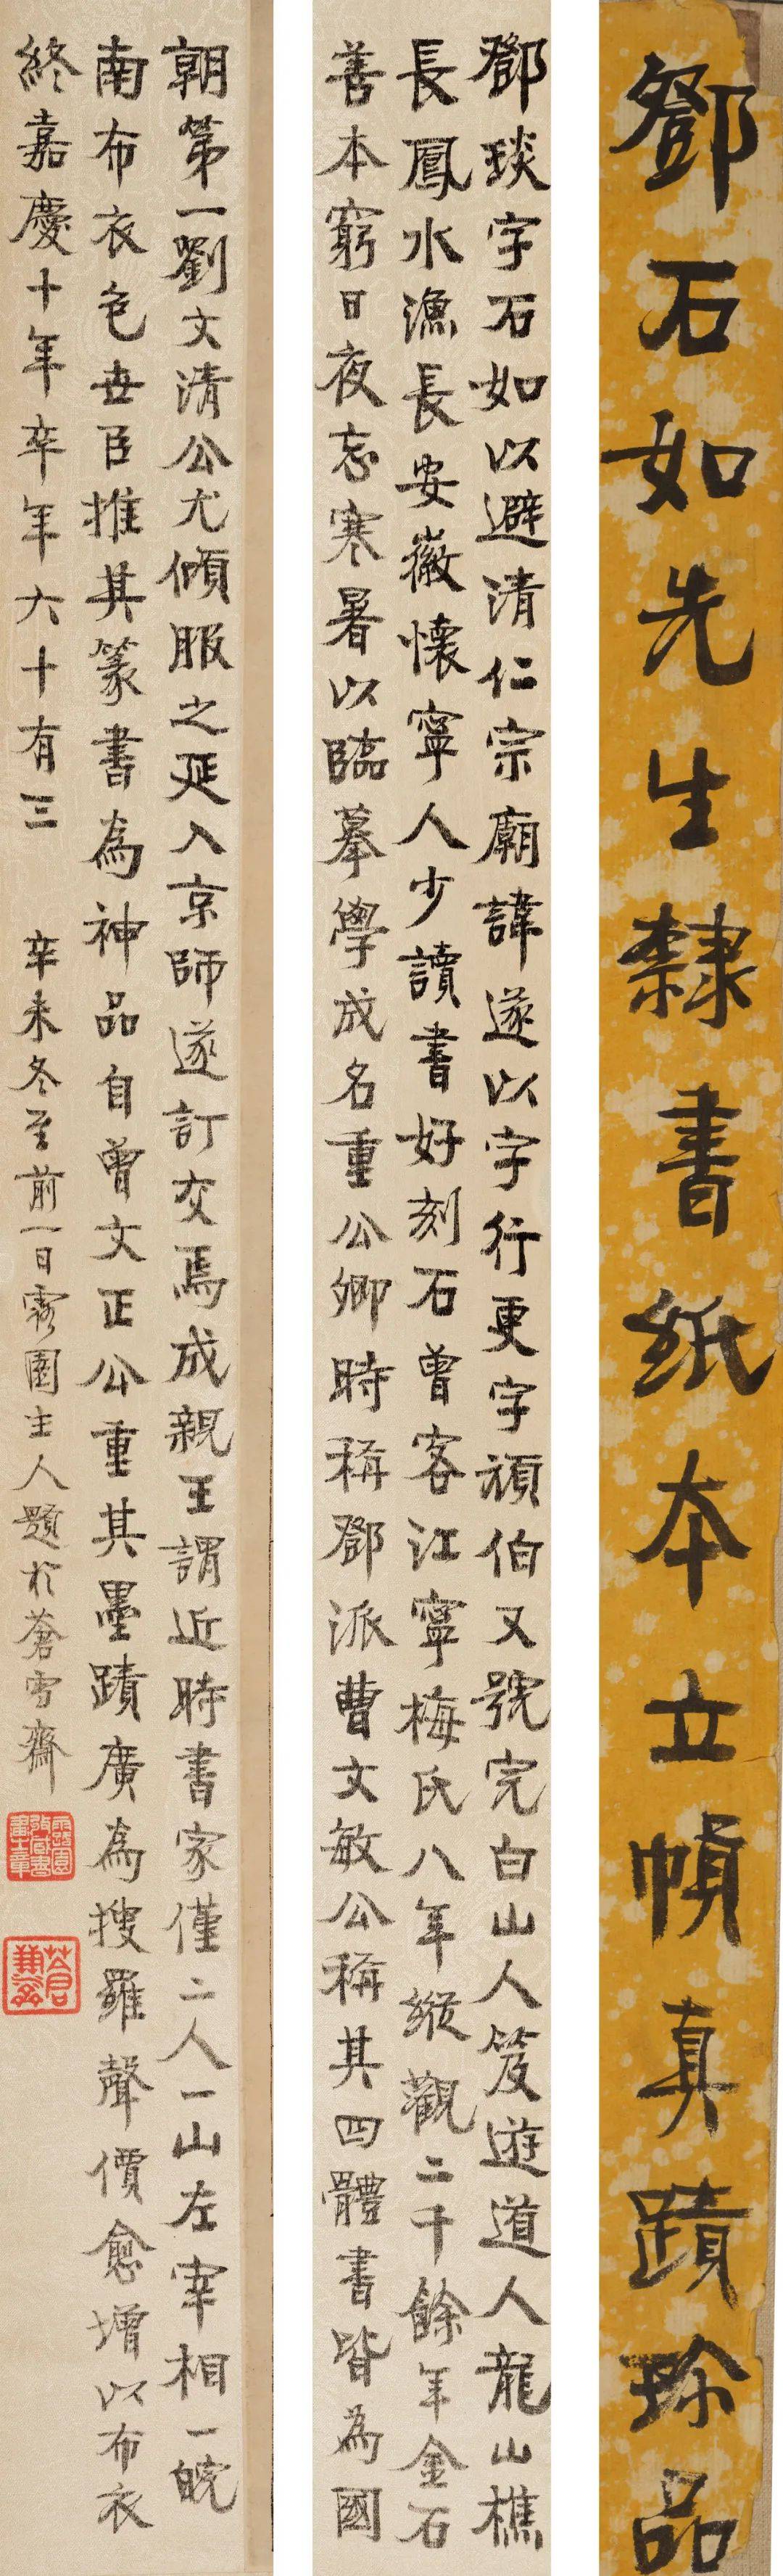 鄧石如先生隸書紙本立幀真蹟珍品
鄧琰字石如以避清仁宗廟諱遂以字行更字頑伯又號完白山人笈遊道人龍山樵
長鳳水漁長安徽懷寧人少讀書好刻石曾客江寧梅氏八年縱觀二千餘年金石
善本窮日夜忘寒暑以臨摹學成名重公卿時稱鄧派曹文敏公稱其四體書皆為國
朝第一劉文清公尤傾服之延入京師遂訂交焉成親王謂近時書家僅二人一山左宰相一皖
南布衣包世臣推其篆書為神品自曾文正公重其墨蹟廣為搜羅聲價愈增以布衣
終嘉慶十年卒年六十有三 辛未冬至前一日霱園主人題於蒼雪齋